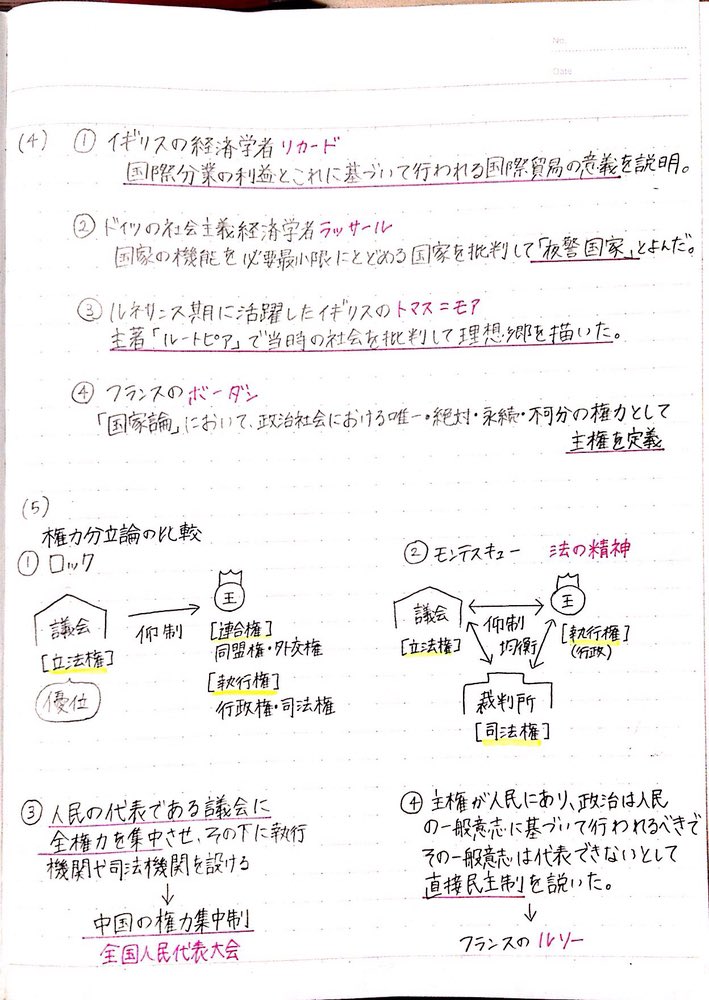 No.
Date
(4) ① イギリスの経済学者リカード
国際分業の利益とこれに基づいて行われる国際貿易の意義を説明。
② ドイツの社会主義経済学者ラッサール
国家の機能を必要最小限にとどめる国家を批判して「夜警国家」とよんだ。
③ ルネサンス期に活躍したイギリスのトマス=モア
主著「ルートピア」で当時の社会を批判して理想郷を描いた。
④ フランスのボーダン
「国家論」において、政治社会における唯一・絶対・永続・不可分の権力として
主権を定義
(5)
権力分立論の比較
① ロック
議会
[立法権]
優位
抑制
王
[連合権]
同盟権・外交権
[執行権]
行政権・司法権
② モンテスキュー 法の精神
議会
[立法権]
抑制
均衡
王
[執行権]
(行政)
裁判所
[司法権]
③ 人民の代表である議会に
全権力を集中させ、その下に執行
機関や司法機関を設ける
↓
中国の権力集中制
全国人民代表大会
④ 主権が人民にあり、政治は人民
の一般意志に基づいて行われるべきで
その一般意志は代表できないとして
直接民主制を説いた。
↓
フランスのルソー